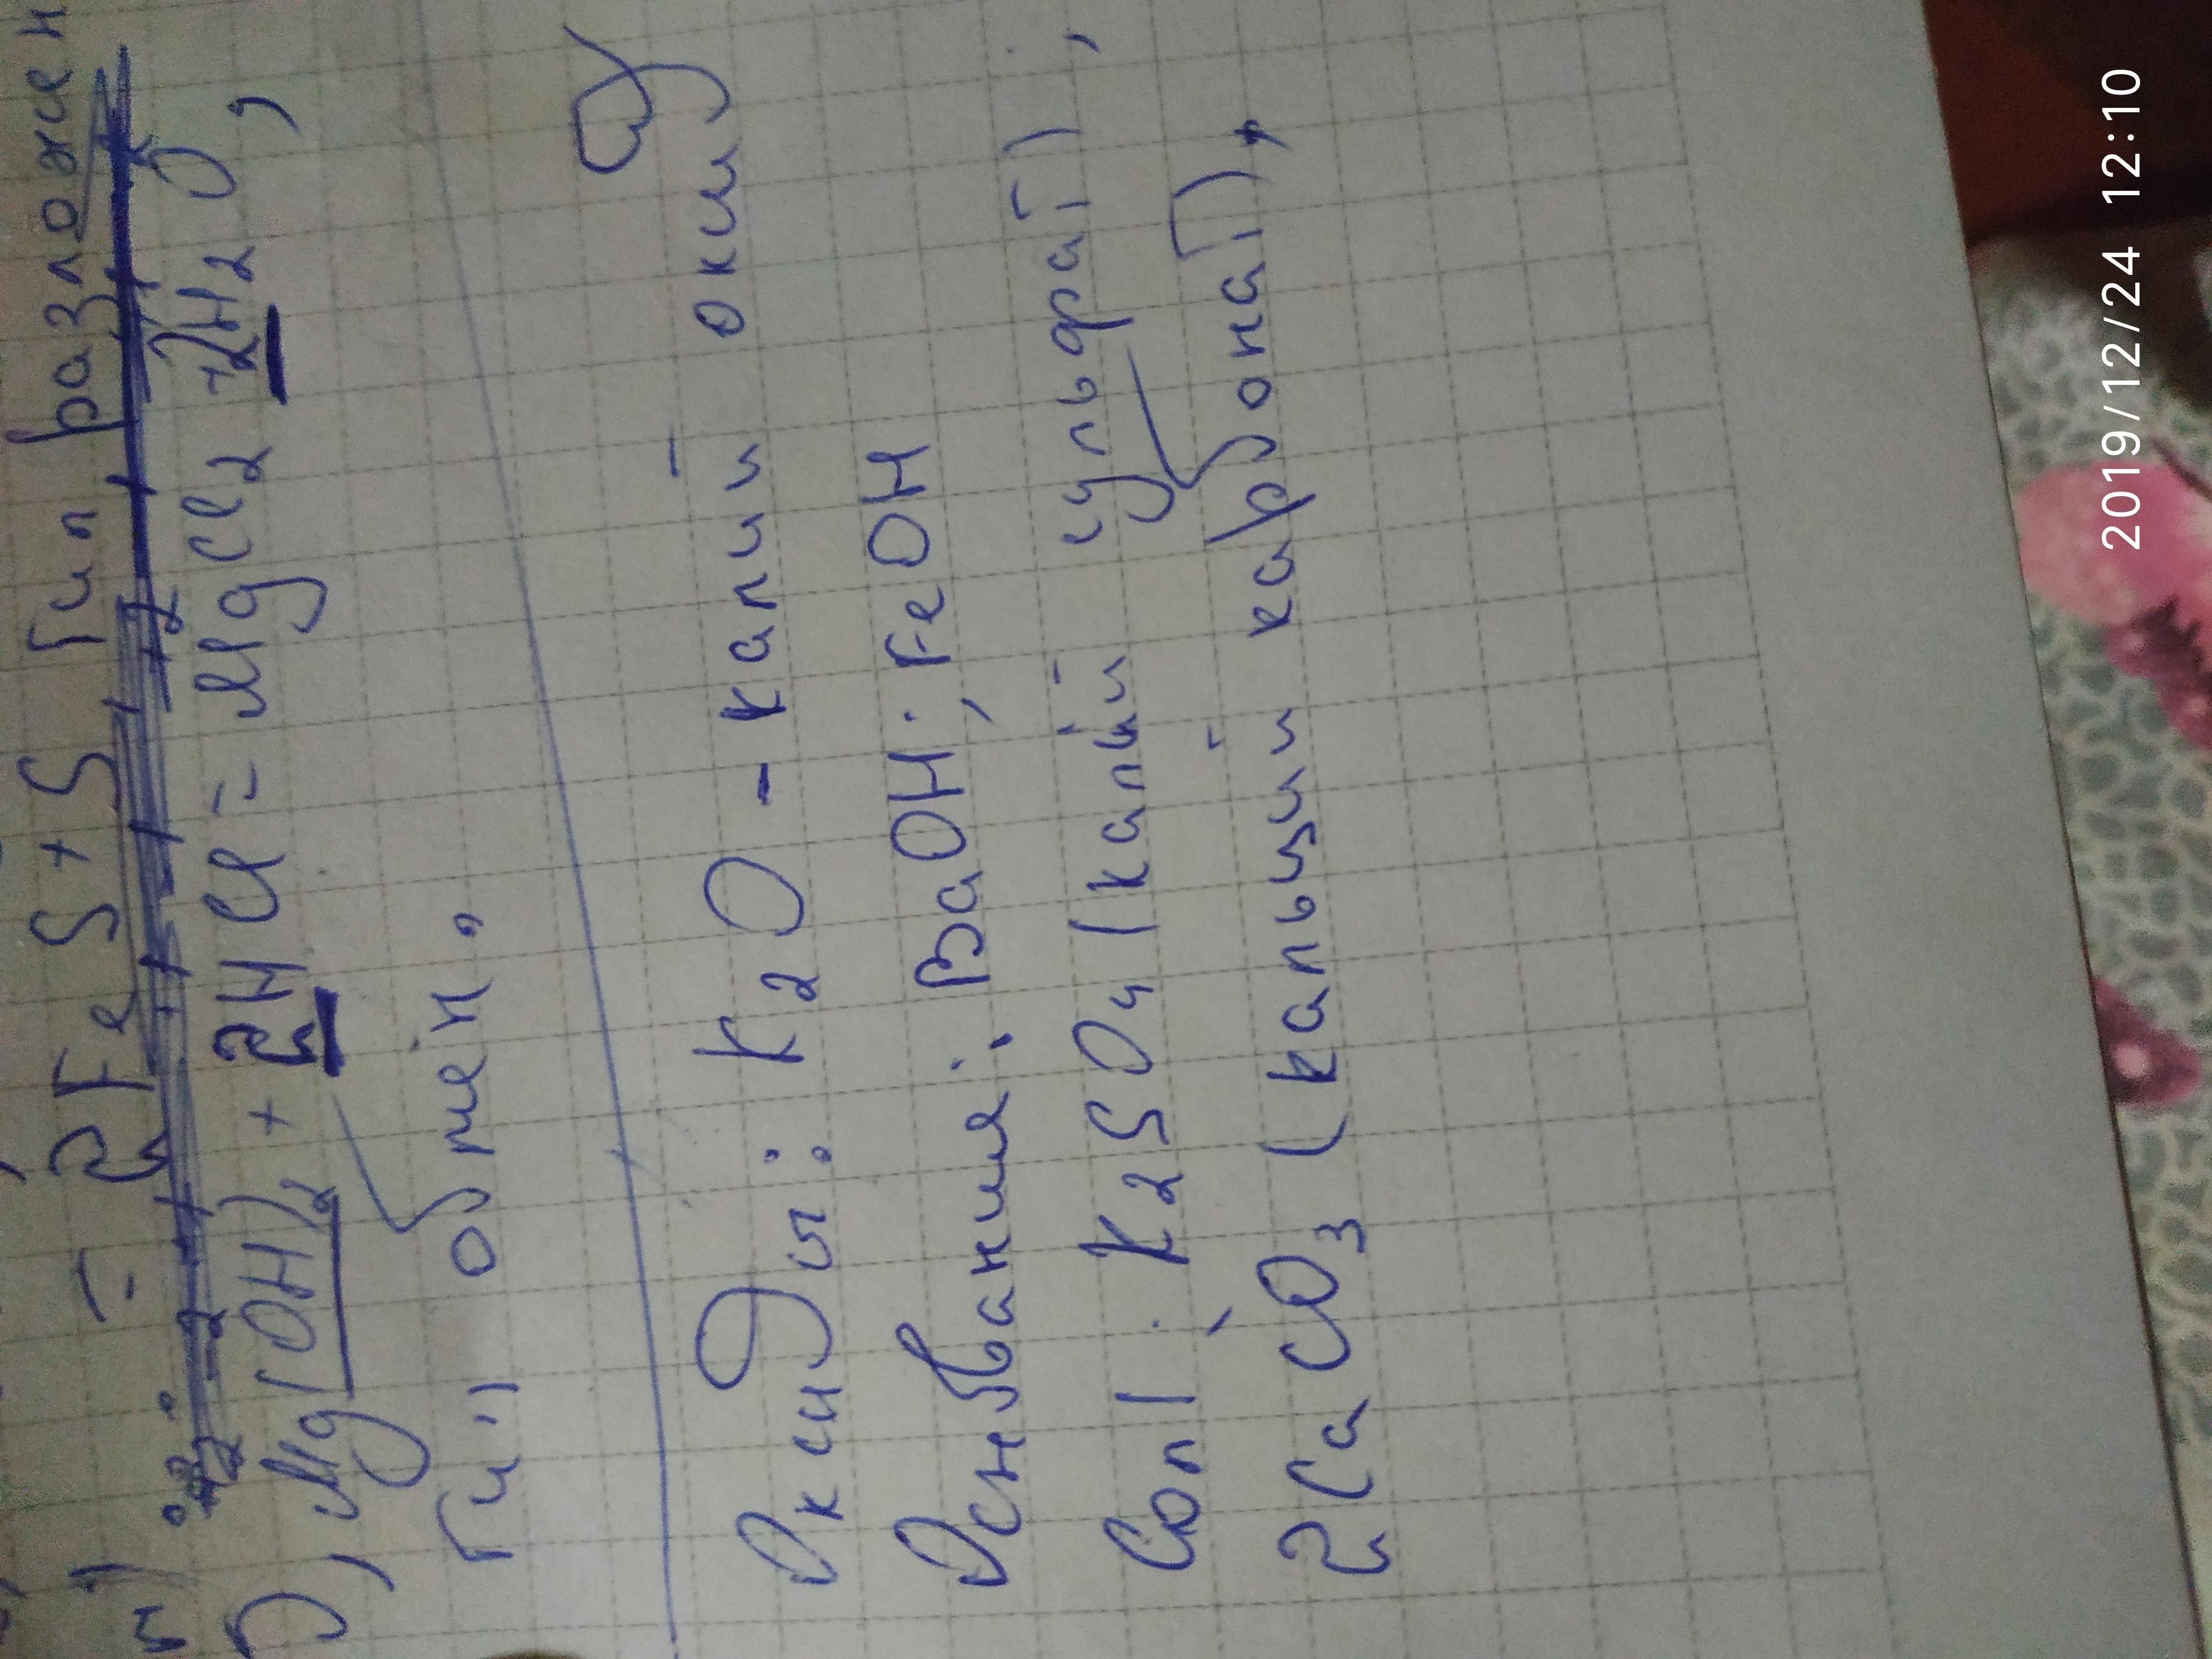 = 2 Fe S + S Тип разложен
Mg(OH)2 + 2HCl = MgCl2 + 2H2O,
Тип обмен.
Оксиды: K2O - калий оксид
Оснований: BaOH; FeOH
Соли: K2SO4 (калий сульфат),
2CaCO3 (кальций карбонат),
2019/12/24 12:10